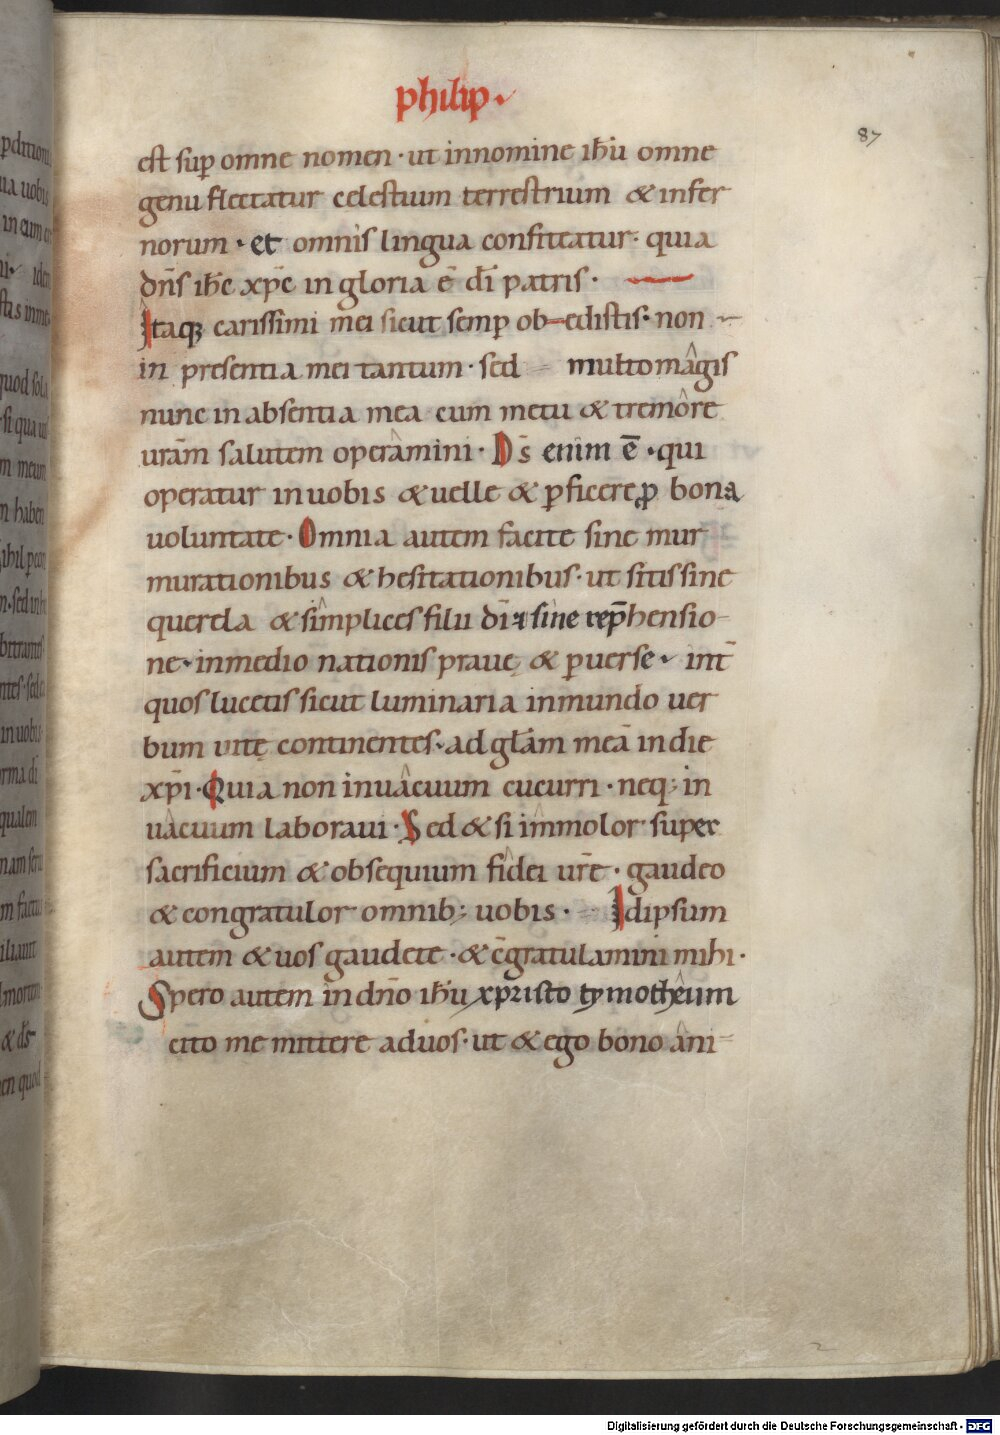 philip·
87
est sup̱ omne nomen · ut innomine ih̄u omne
genu flectatur celestium terrestrium & infer
norum · et omnis lingua confiteatur · quia
dn̄s ih̄c xp̄c in gloria ē dī patris ·
Itaq; carissimi mei sicut semp̱ ob-edistis · non
in presentia mei tantum · sed multomagis
nunc in absentia mea cum metu & tremore
uram̄ salutem operamini · Ds̄ enim ē · qui
operatur inuobis & uelle & ꝑficere ꝓ bona
uoluntate · Omnia autem facite sine mur
murationibus & hesitationibus · ut sitis sine
querela & simplices filii dī & sine rep̄hensio-
ne · inmedio nationis praue & ꝑuerse · int̄
quos lucetis sicut luminaria inmundo uer
bum uitę continentes · ad gl̄am meā indie
xp̄i · Quia non inuacuum cucurri · neq; in
uacuum laboraui · Sed & si immolor super
sacrificium & obsequium fidei ur̄e · gaudeo
& congratulor omnib; uobis · Idipsum
autem & uos gaudete · & c̄gratulamini mihi ·
Spero autem in dn̄o ih̄u xpristo tymotheum
cito me mittere aduos · ut & ego bono ani-
Digitalisierung gefördert durch die Deutsche Forschungsgemeinschaft - DFG